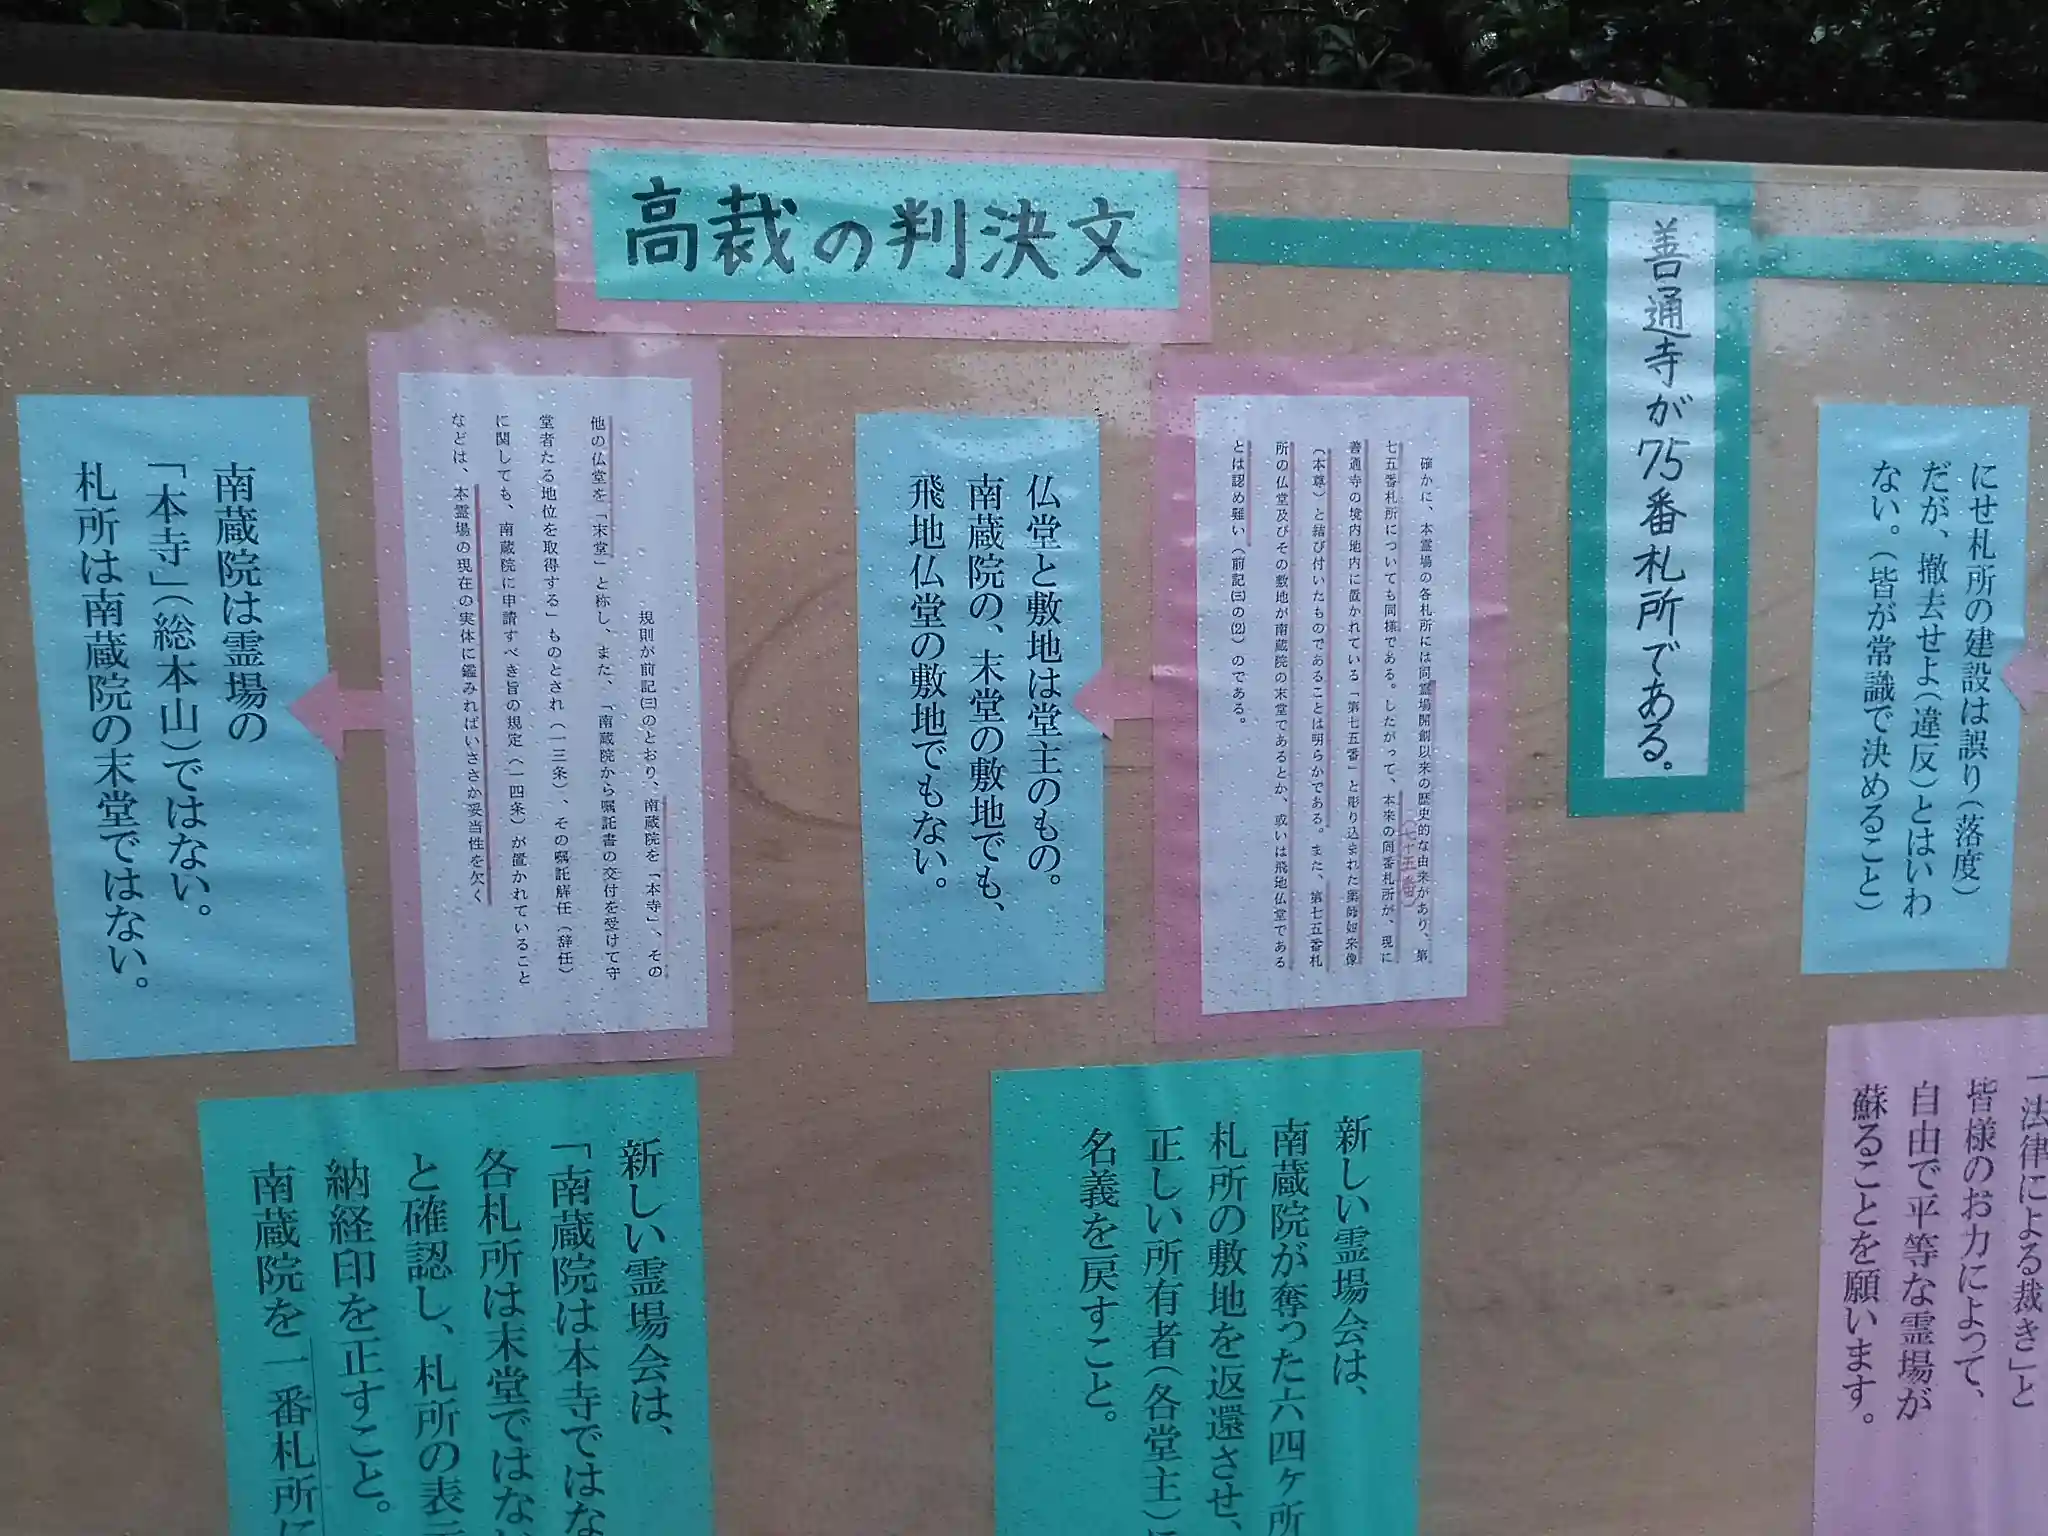 高裁の判決文
善通寺が75番札所である。
にせ札所の建設は誤り(落度)
だが、撤去せよ(違反)とはいわ
ない。(皆が常識で決めること)
確かに、本霊場の各札所には同霊場開創以来の歴史的な由来があり、第
七五番札所についても同様である。したがって、本来の同番札所が、現に
(七十五番)
善通寺の境内地内に置かれている「第七五番」と彫り込まれた薬師如来像
(本尊)と結び付いたものであることは明らかである。また、第七五番札
所の仏堂及びその敷地が南蔵院の末堂であるとか、或いは飛地仏堂である
とは認め難い(前記㈢の⑵)のである。
仏堂と敷地は堂主のもの。
南蔵院の、末堂の敷地でも、
飛地仏堂の敷地でもない。
規則が前記㈢のとおり、南蔵院を「本寺」、その
他の仏堂を「末堂」と称し、また、「南蔵院から嘱託書の交付を受けて守
堂者たる地位を取得する」ものとされ(一三条)、その嘱託解任(辞任)
に関しても、南蔵院に申請すべき旨の規定(一四条)が置かれていること
などは、本霊場の現在の実体に鑑みればいささか妥当性を欠く
南蔵院は霊場の
「本寺」(総本山)ではない。
札所は南蔵院の末堂ではない。
「法律による裁き」と
皆様のお力によって、
自由で平等な霊場が
蘇ることを願います。
新しい霊場会は、
南蔵院が奪った六四ヶ所
札所の敷地を返還させ、
正しい所有者(各堂主)に
名義を戻すこと。
新しい霊場会は、
「南蔵院は本寺ではな
各札所は末堂ではな
と確認し、札所の表示
納経印を正すこと。
南蔵院を一番札所に